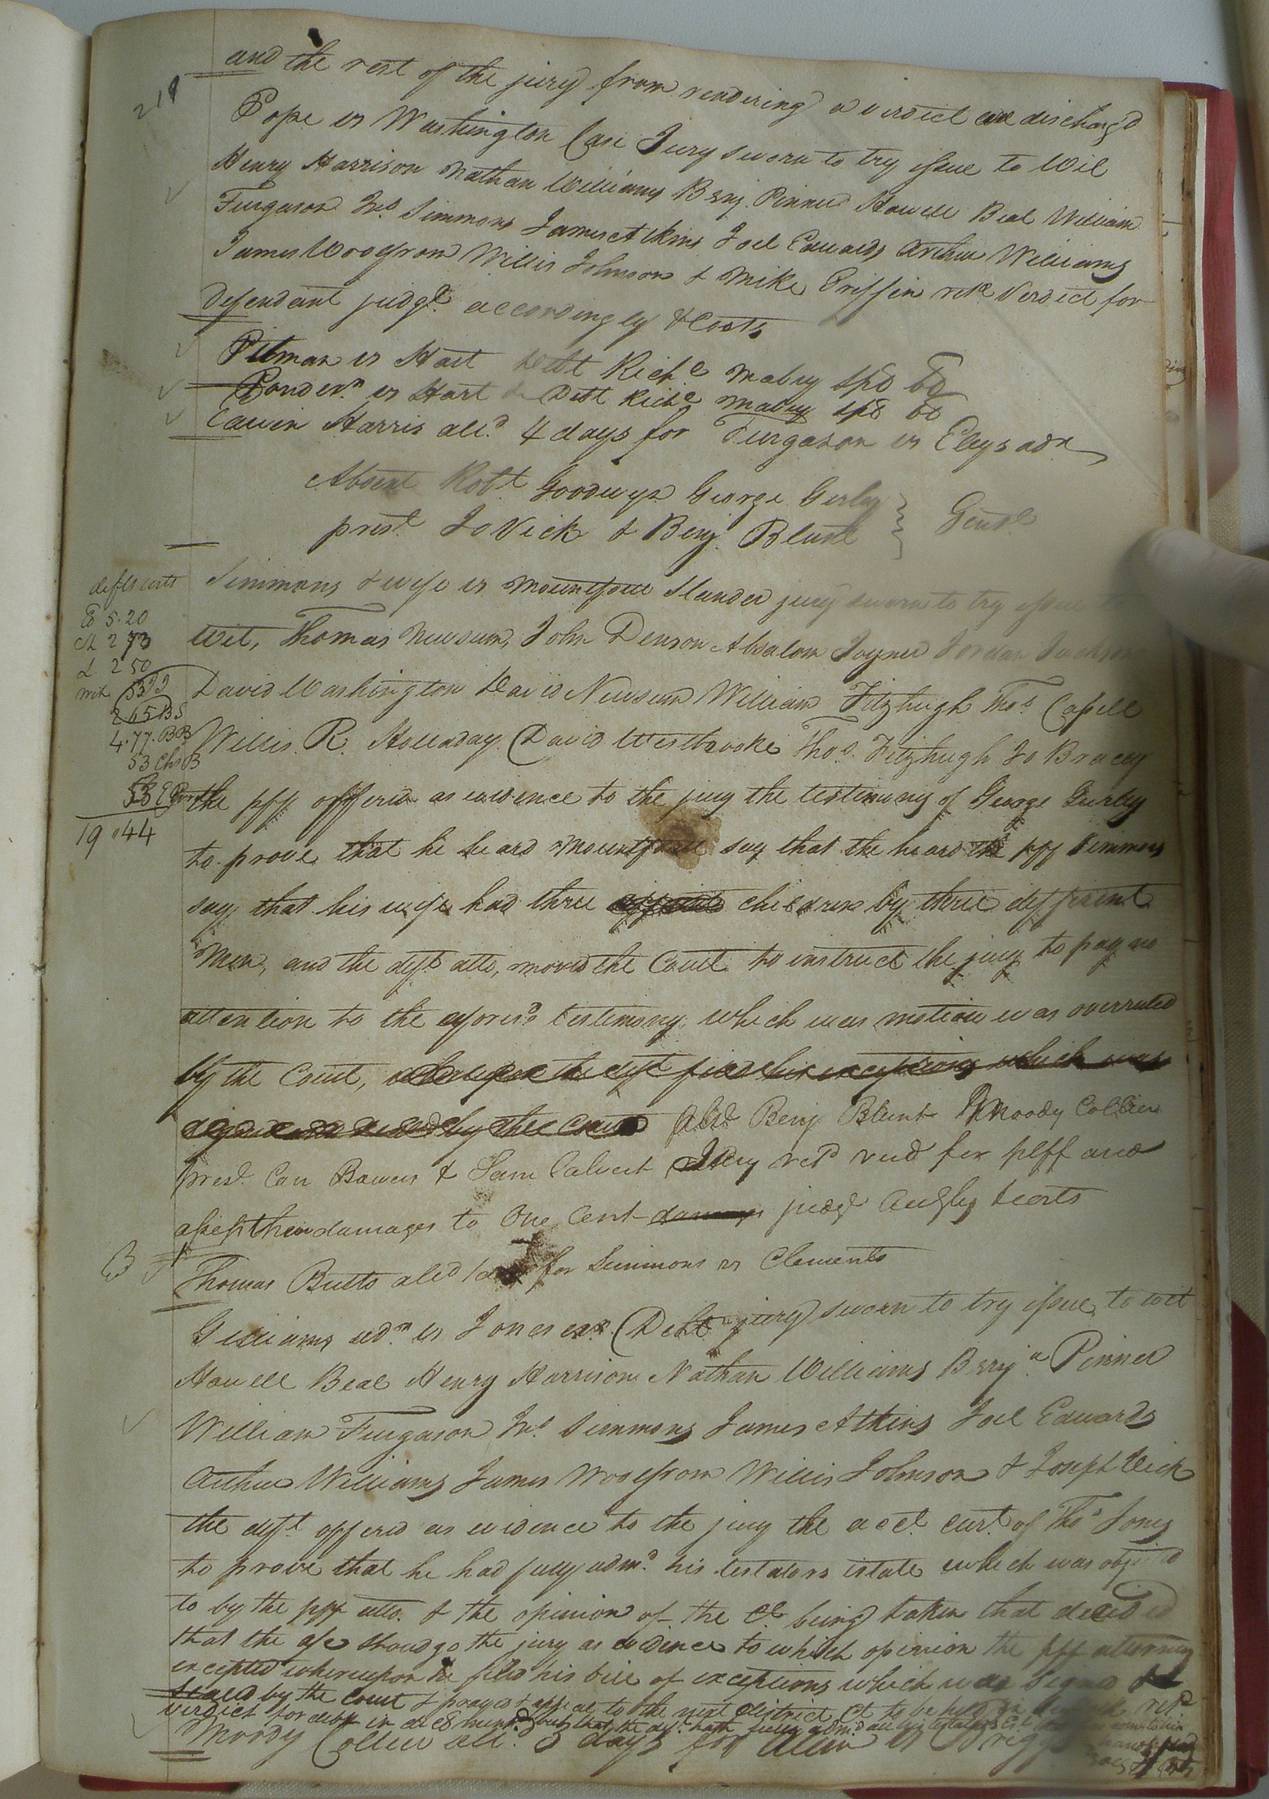 219
and the rest of the jury from rendering a verdict are discharg'd
Pope vs Washington Case Jury sworn to try issue to Wit
Henry Harrison Nathan Williams Benj. Pinner Howell Beal William
Furgason Jno. Simmons James Atkins Joel Edwards Arthur Williams
James Woodgrom Willis Johnson & Mike Griffin retd. Verdict for
defendant judgt. accordingly & Costs
Pitman vs Hart Debt Richd. Mabry spb bd
vs Hart Debt Richd. Mabry spb bd
Edwin Harris alld. 4 days for Furgason vs Eleys adr
Absent Robt. Goodwyn George Gurley
prest. Jo Vick & Benj. Blunt } Gent.
Simmons & wife vs Mountfort Slander jury sworn to try issue to
Wit, Thomas Newsum, John Denson Absalom Joyner Jordan Jackson
David Washington David Newsum William Fitzhugh Thos. Capell
Willis R. Holladay David Westbrooke Thos. Fitzhugh Jo Bracey
the pff offered as evidence to the jury the testimony of George Gurley
to prove that he heard Mountfort say that the heard the pff Simmons
say that his wife had three children by three different
Men, and the deft atto. moved the Court to instruct the jury to pay no
attention to the aforesd. testimony, which was motion was overruled
by the Court, whereupon the deft filed his exceptions which was
signed and sealed by the Court Abst Benj Blunt Moody Collier
prest. Carr Bowers & Sam Calvert Jury retd verd for plff and
assess their damages to One Cent damages judgt accgly & costs
defts costs
5.20
2 73
2 50
4.77
53
19.44
B
Thomas Butts alld 1 day for Simmons vs Clements
Williams adm. vs Jones exr. Debt jury sworn to try issue to wit
Howell Beal Henry Harrison Nathan Williams Benja. Pinner
William Furgason Jno. Simmons James Atkins Joel Edwards
Arthur Williams James Woodgrom Willis Johnson & Joseph Vick
the deft. offered as evidence to the jury the acct. curt. of Thos. Jones
to prove that he had fully admd. his testators estate which was objected
to by the pff atto. & the opinion of the Ct being taken that decided
that the a/c should go the jury as evidence to which opinion the pff attorney
excepted whereupon he filed his bill of exceptions which was signed &
sealed by the Court & prayed appeal to the next district Ct to be held retd
verdict for debt in but that the deft. hath fully admd
Moody Collier alld. 3 days for